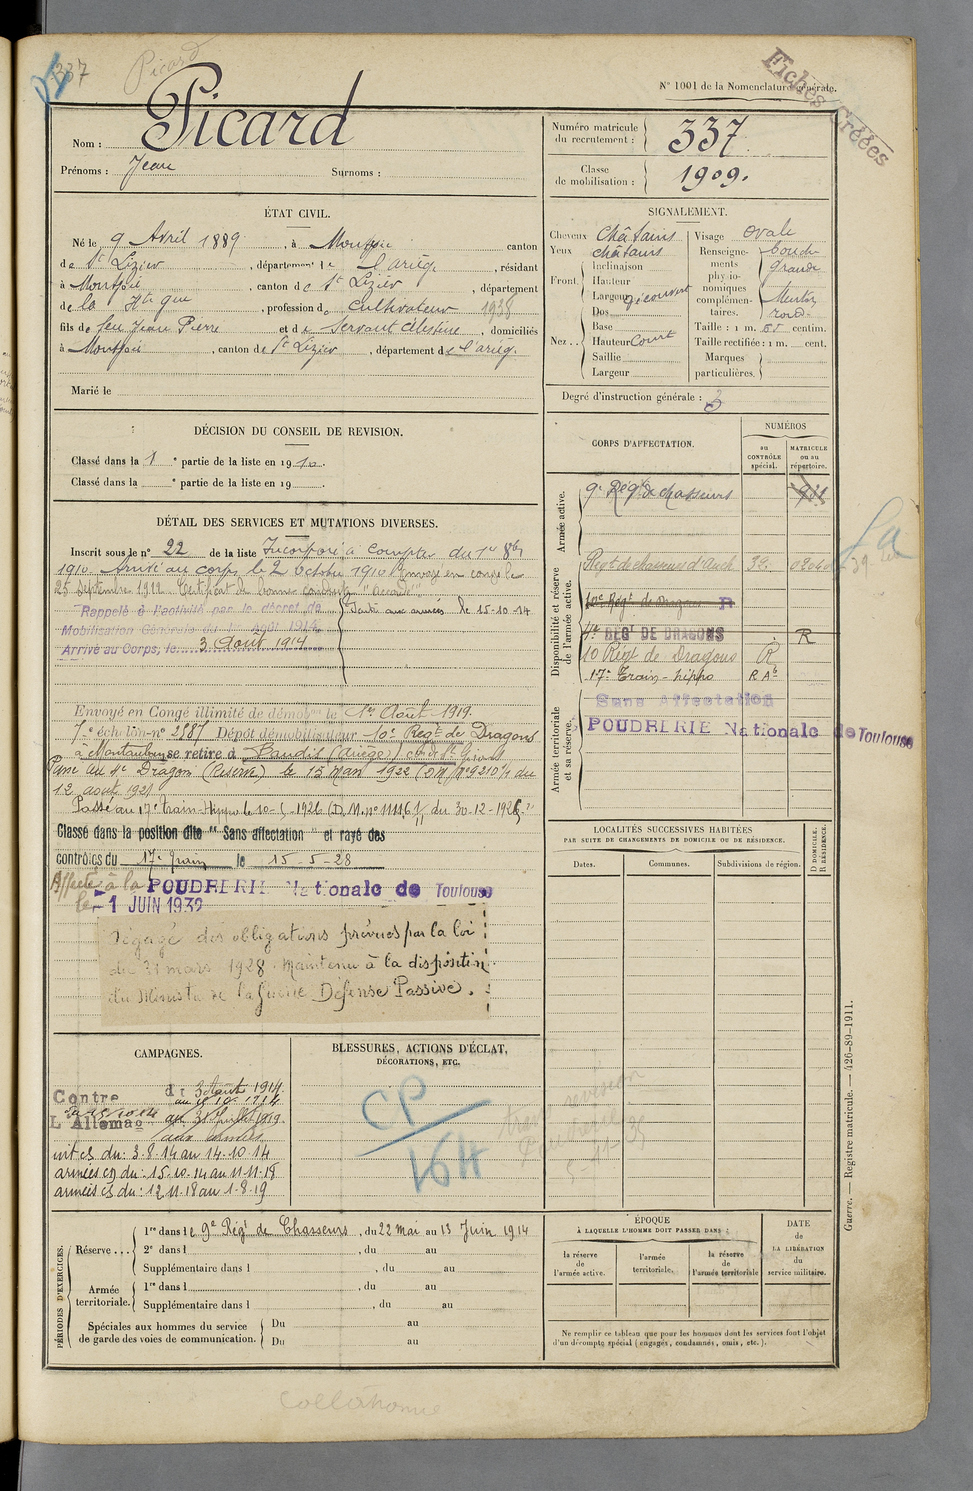 337
Picard
N° 1001 de la Nomenclature générale.
Fiches Créées
Nom : Picard
Prénoms : Jean Surnoms :
Numéro matricule du recrutement : 337
Classe de mobilisation : 1909.
ÉTAT CIVIL.
Né le 9 Avril 1889, à Montjoie canton
de St Lizier, département de l'Ariège, résidant
à Montjoie, canton de St Lizier, département
de la Hte Gne, profession de Cultivateur 1938
fils de feu Jean Pierre et de Servant Célestine, domiciliés
à Montjoie, canton de St Lizier, département de l'Ariège.
Marié le
SIGNALEMENT.
Cheveux Châtains
Yeux châtains
Front. Inclinaison
Hauteur
Largeur découvert
Nez .. Dos
Base
Hauteur Court
Saillie
Largeur
Visage ovale
Renseignements physionomiques complémentaires. bouche grande
Menton rond.
Taille : 1 m. centim.
Taille rectifiée : 1 m. cent.
Marques particulières.
Degré d'instruction générale : 3
DÉCISION DU CONSEIL DE REVISION.
Classé dans la 1e partie de la liste en 1910.
Classé dans la e partie de la liste en 19 .
DÉTAIL DES SERVICES ET MUTATIONS DIVERSES.
Inscrit sous le n° 22 de la liste Incorporé à compter du 1er 8bre
1910. Arrivé au corps le 2 Octobre 1910. Envoyé en congé le
25 Septembre 1912. Certificat de bonne conduite "accordé".
Rappelé à l'activité par le décret de
Mobilisation Générale du 1er Août 1914.
Arrivé au Corps, le 3 Août 1914
aux armées le 15-10-14
Envoyé en Congé illimité de démob. le 1er Août 1919.
7e échelon n° 2887 Dépôt démobilisateur 10e Régt de Dragons
à Montauban se retire à Baudit (Ariège) c. de St Girons
Passé au 4e Dragon (Réserve) le 15 Mars 1922 (DM n° 9210 1/2 du
12 août 1921
Passé au 17e Train-Hippo le 10- -1926 (D.M. n° 11116 1/11 du 30-12-1925
Classé dans la position dite "Sans affectation" et rayé des
contrôles du 17e train le 15-5-28
Affecté à la POUDRERIE Nationale de Toulouse
le 1 JUIN 1932
Dégagé des obligations prévues par la loi
du 31 mars 1928. Maintenu à la disposition
du Ministre de la Guerre Défense Passive.
CORPS D'AFFECTATION.
NUMÉROS
au CONTRÔLE spécial.
MATRICULE ou au répertoire.
Armée active.
9e Régt de chasseurs
Disponibilité et réserve de l'armée active.
Régt de chasseurs d'Auch
10e Régt de Dragons R
4e RÉGT DE DRAGONS R
10 Régt de Dragons R
17e Train-hippo
Armée territoriale et sa réserve.
Sans Affectation
POUDRERIE Nationale de Toulouse
LOCALITÉS SUCCESSIVES HABITÉES
PAR SUITE DE CHANGEMENTS DE DOMICILE OU DE RÉSIDENCE.
Dates.
Communes.
Subdivisions de région.
D DOMICILE.
R RÉSIDENCE.
CAMPAGNES.
Contre L'Allemag.
du 3 Août 1914
au 15-10-1914
du 15/10/14
au 31 Juillet 1919
aux armées
int cs du : 3.8.14 au 14.10.14
armées cd du : 15.10.14 au 11.11.18
armées cs du : 12.11.18 au 1.8.19
BLESSURES, ACTIONS D'ÉCLAT,
DÉCORATIONS, ETC.
CP
164
PÉRIODES D'EXERCICES.
Réserve ... 1re dans le 9e Régt de Chasseurs, du 22 mai au 13 Juin 1914
2e dans l , du au
Supplémentaire dans l , du au
Armée territoriale. 1re dans l , du au
Supplémentaire dans l , du au
Spéciales aux hommes du service de garde des voies de communication. Du au
Du au
ÉPOQUE
À LAQUELLE L'HOMME DOIT PASSER DANS :
la réserve de l'armée active.
l'armée territoriale.
la réserve de l'armée territoriale
DATE de LA LIBÉRATION du service militaire.
Ne remplir ce tableau que pour les hommes dont les services font l'objet
d'un décompte spécial (engagés, condamnés, omis, etc.).
Guerre. — Registre matricule. — 426-89-1911.